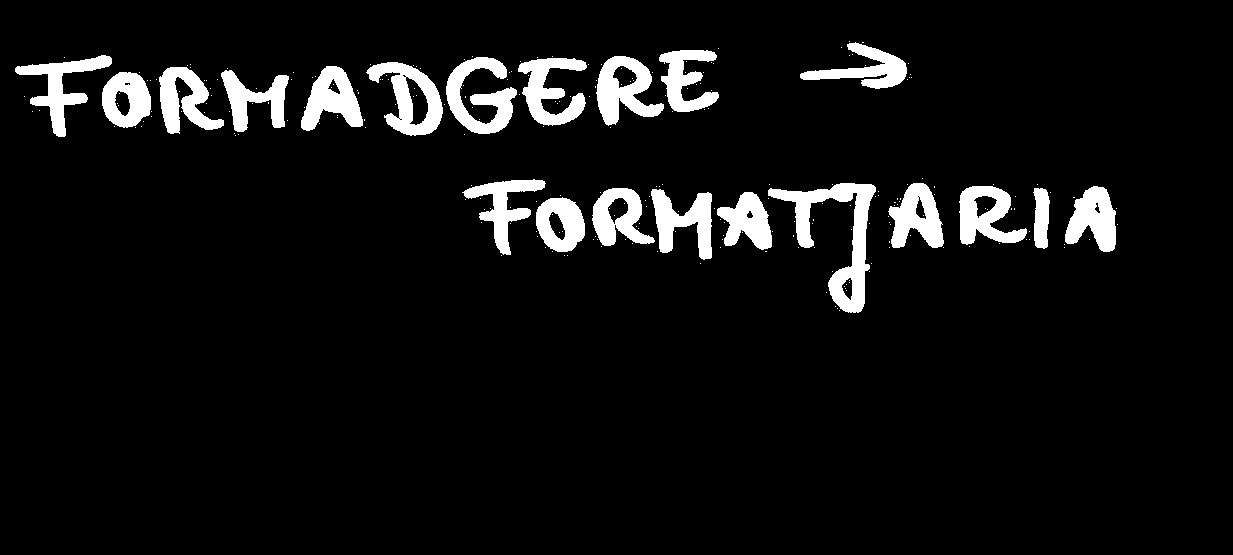 FORMADGERE →
FORMATJARIA